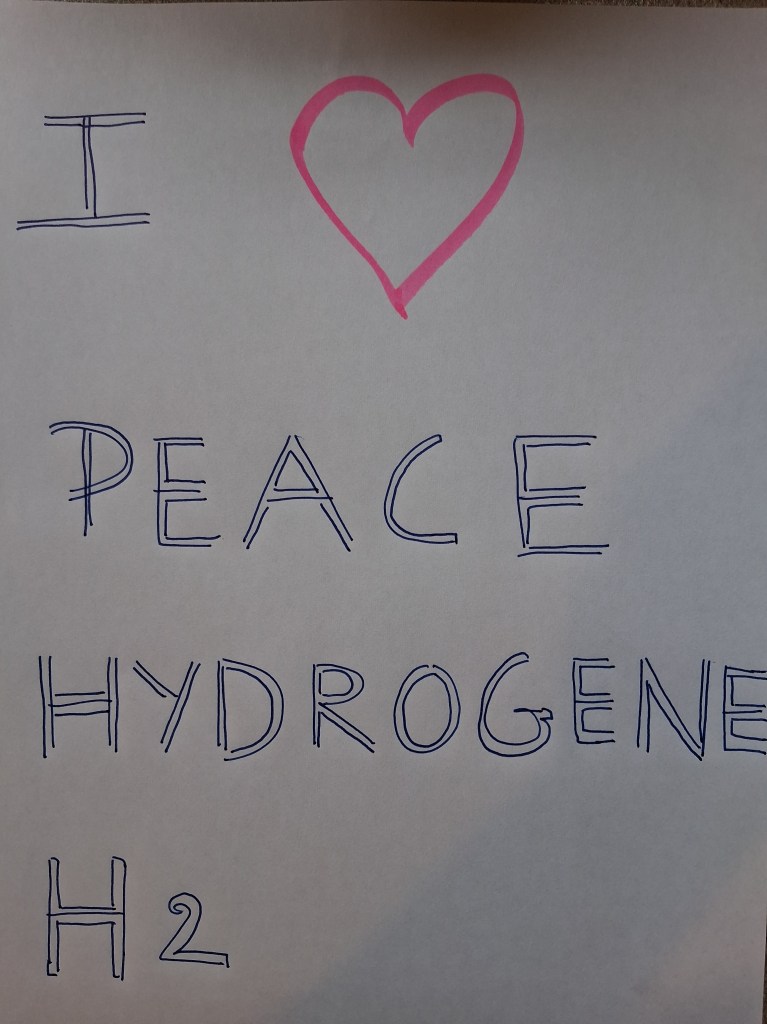 I
PEACE
HYDROGENE
H2